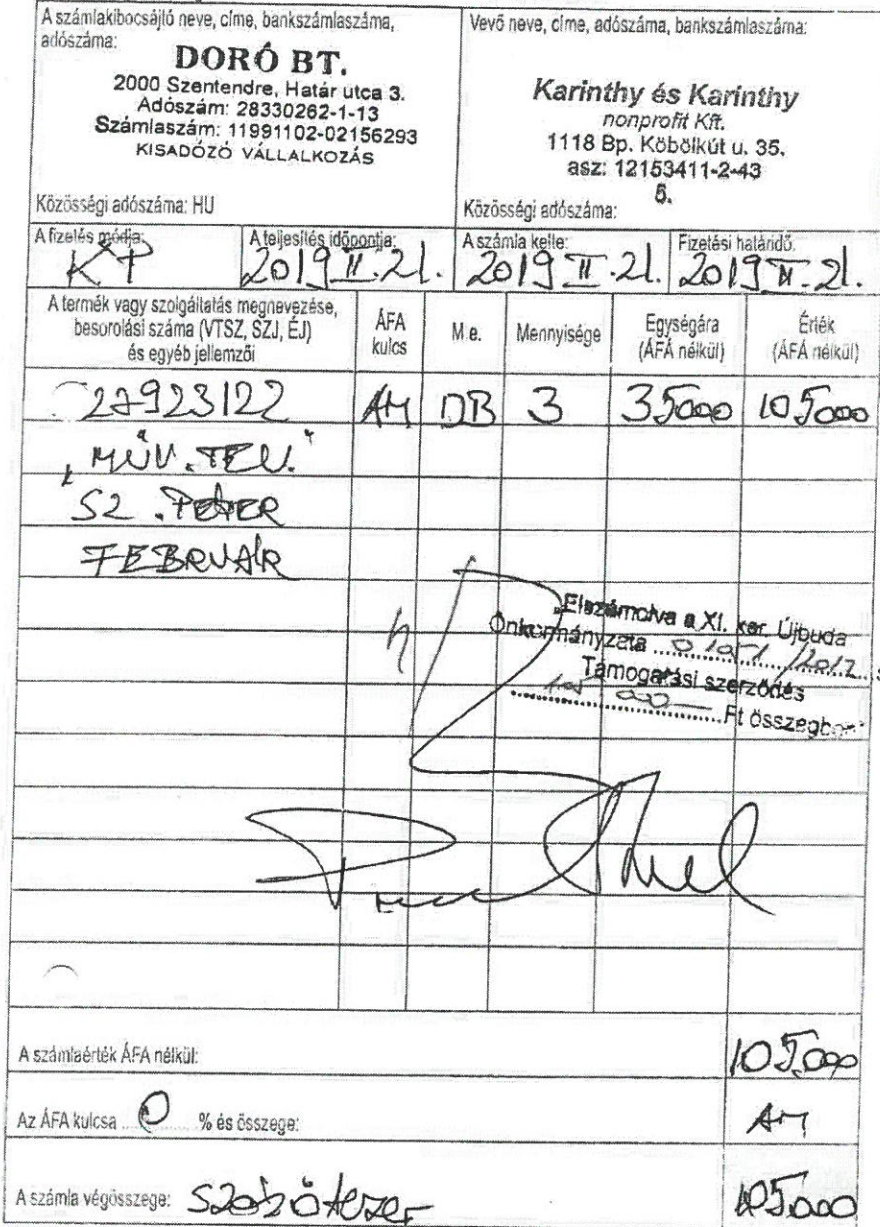 A számlakibocsájtó neve, címe, bankszámlaszáma,
adószáma:
DORÓ BT.
2000 Szentendre, Határ utca 3.
Adószám: 28330262-1-13
Számlaszám: 11991102-02156293
KISADÓZÓ VÁLLALKOZÁS
Közösségi adószáma: HU
Vevő neve, címe, adószáma, bankszámlaszáma:
Karinthy és Karinthy
nonprofit Kft.
1118 Bp. Köbölkút u. 35.
asz: 12153411-2-43
5.
Közösségi adószáma:
A fizetés módja: KP
A teljesítés időpontja: 2019 II. 21.
A számla kelte: 2019 II. 21.
Fizetési határidő: 2019 II. 21.
A termék vagy szolgáltatás megnevezése,
besorolási száma (VTSZ, SZJ, ÉJ)
és egyéb jellemzői
ÁFA
kulcs
M.e.
Mennyisége
Egységára
(ÁFA nélkül)
Érték
(ÁFA nélkül)
27923122 AM DB 3 35000 105000
"MŰV. TEV."
SZ. PÉTER
FEBRUÁR
„Elszámolva a XI. ker. Újbuda
Önkormányzata
Támogatási szerződés
Ft összegben"
A számlaérték ÁFA nélkül: 105.000
Az ÁFA kulcsa 0 % és összege: AM
A számla végösszege: Százötezer 105.000